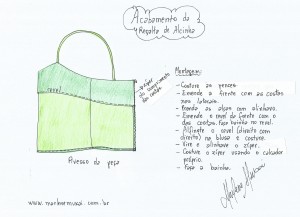 Acabamento da
Regata de Alcinha
revel
zíper
Avesso da peça
Montagem:
- Costure as pences.
- Emende a frente com as costas
nas laterais.
- Prenda as alças com alinhavo.
- Emende o revel da frente com o
das costas. Faça bainha no revel.
- Alfinete o revel (direito com
direito) na blusa e costure.
- Vire e pinlhave o zíper.
- Costure o zíper usando o calcador
próprio.
- Faça a bainha.
www.marlenemukai.com.br
Marlene Mukai